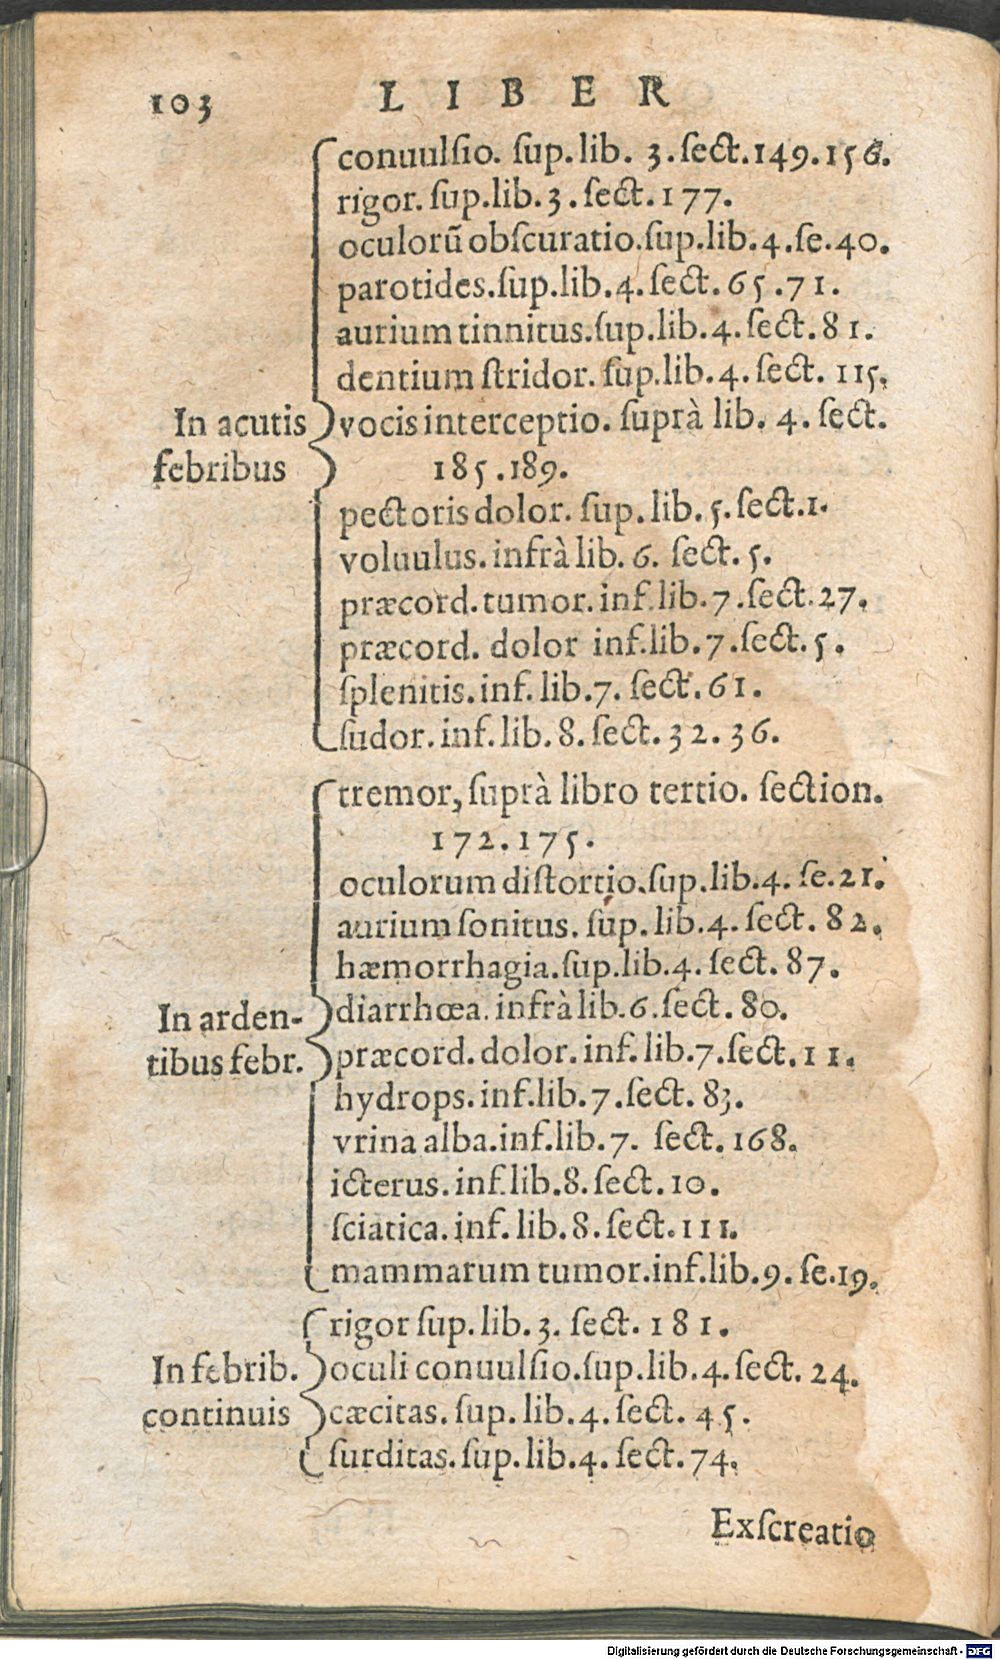 103 LIBER
conuulſio. ſup. lib. 3. ſect. 149. 156.
rigor. ſup. lib. 3. ſect. 177.
oculorũ obſcuratio. ſup. lib. 4. ſe. 40.
parotides. ſup. lib. 4. ſect. 65. 71.
aurium tinnitus. ſup. lib. 4. ſect. 81.
dentium ſtridor. ſup. lib. 4. ſect. 115.
In acutis vocis interceptio. ſuprà lib. 4. ſect.
febribus 185. 189.
pectoris dolor. ſup. lib. 5. ſect. 1.
voluulus. infrà lib. 6. ſect. 5.
præcord. tumor. inf. lib. 7. ſect. 27.
præcord. dolor inf. lib. 7. ſect. 5.
ſplenitis. inf. lib. 7. ſect. 61.
ſudor. inf. lib. 8. ſect. 32. 36.
tremor, ſuprà libro tertio. ſection.
172. 175.
oculorum diſtortio. ſup. lib. 4. ſe. 21.
aurium ſonitus. ſup. lib. 4. ſect. 82.
hæmorrhagia. ſup. lib. 4. ſect. 87.
In arden- diarrhœa. infrà lib. 6. ſect. 80.
tibus febr. præcord. dolor. inf. lib. 7. ſect. 11.
hydrops. inf. lib. 7. ſect. 83.
vrina alba. inf. lib. 7. ſect. 168.
icterus. inf. lib. 8. ſect. 10.
ſciatica. inf. lib. 8. ſect. 111.
mammarum tumor. inf. lib. 9. ſe. 19.
rigor ſup. lib. 3. ſect. 181.
In febrib. oculi conuulſio. ſup. lib. 4. ſect. 24.
continuis cæcitas. ſup. lib. 4. ſect. 45.
ſurditas. ſup. lib. 4. ſect. 74.
Exſcreatio
Digitalisierung gefördert durch die Deutsche Forschungsgemeinschaft - DFG